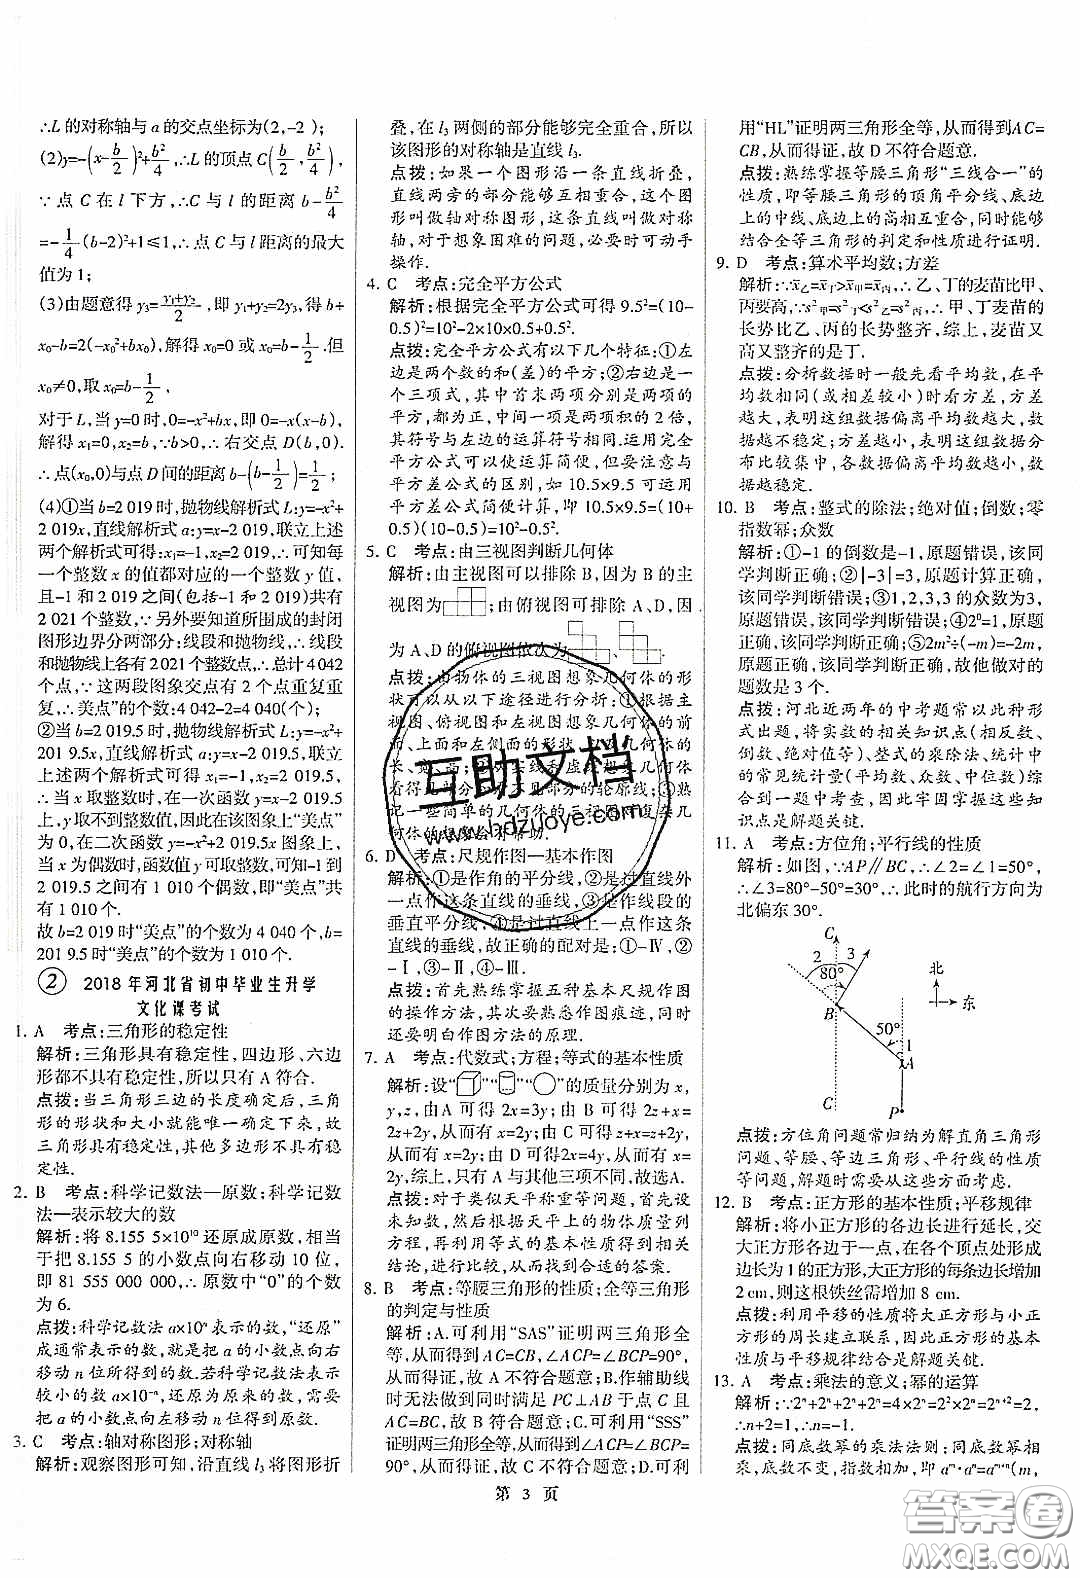 ∴L的对称轴与a的交点坐标为(2,-2);
(2)y=-(x-b/2)²+b²/4,∴L的顶点C(b/2,b²/4),
∵点C在l下方,∴C与l的距离b-b²/4
=-1/4(b-2)²+1≤1,∴点C与l距离的最大
值为1;
(3)由题意得y₃=(y₁+y₂)/2,即y₁+y₂=2y₃,得b+
x₀-b=2(-x₀²+bx₀),解得x₀=0或x₀=b-1/2.但
x₀≠0,取x₀=b-1/2,
对于L,当y=0时,0=-x²+bx,即0=-x(x-b),
解得x₁=0,x₂=b,∵b>0,∴右交点D(b,0).
∴点(x₀,0)与点D间的距离b-(b-1/2)=1/2;
(4)①当b=2 019时,抛物线解析式L:y=-x²+
2 019x,直线解析式a:y=x-2 019,联立上述
两个解析式可得:x₁=-1,x₂=2 019,∴可知每
一个整数x的值都对应的一个整数y值,
且-1和2 019之间(包括-1和2 019)共有
2 021个整数;∵另外要知道所围成的封闭
图形边界分两部分:线段和抛物线,∴线段
和抛物线上各有2 021个整数点,∴总计4 042
个点,∵这两段图象交点有2个点重复重
复,∴“美点”的个数:4 042-2=4 040(个);
②当b=2019.5时,抛物线解析式L:y=-x²+
201 9.5x,直线解析式a:y=x-2 019.5,联立
上述两个解析式可得:x₁=-1,x₂=2 019.5,
∴当x取整数时,在一次函数y=x-2 019.5
上,y取不到整数值,因此在该图象上“美点”
为0,在二次函数y=x²+2 019.5x图象上,
当x为偶数时,函数值y可取整数,可知-1到
2 019.5之间有1 010个偶数,即“美点”
共有1 010个.
故b=2 019时“美点”的个数为4 040个,b=
201 9.5时“美点”的个数为1 010个.
② 2018年河北省初中毕业生升学
文化课考试
1. A 考点:三角形的稳定性
解析:三角形具有稳定性,四边形、六边
形都不具有稳定性,所以只有A符合.
点拨:当三角形三边的长度确定后,三角
形的形状和大小就能唯一确定下来,故
三角形具有稳定性,其他多边形不具有
稳定性.
2. B 考点:科学记数法—原数;科学记数
法—表示较大的数
解析:将8.155 5×10¹⁰还原成原数,相当
于把8.155 5的小数点向右移动10位,
即81 555 000 000,∴原数中“0”的个数
为6.
点拨:科学记数法a×10ⁿ表示的数,“还原”
成通常表示的数,就是把a的小数点向右
移动n位所得到的数.若科学记数法表示
较小的数a×10⁻ⁿ,还原为原来的数,需要
把a的小数点向左移动n位得到原数.
3. C 考点:轴对称图形;对称轴
解析:观察图形可知,沿直线l₃将图形折
叠,在l₃两侧的部分能够完全重合,所以
该图形的对称轴是直线l₃.
点拨:如果一个图形沿一条直线折叠,
直线两旁的部分能够互相重合,这个图
形叫做轴对称图形,这条直线叫做对称
轴,对于想象困难的问题,必要时可动手
操作.
4. C 考点:完全平方公式
解析:根据完全平方公式可得9.5²=(10-
0.5)²=10²-2×10×0.5+0.5².
点拨:完全平方公式有以下几个特征:①左
边是两个数的和(差)的平方;②右边是
一个三项式,其中首末两项分别是两项的
平方,都为正,中间一项是两项积的2倍,
其符号与左边的运算符号相同.运用完全
平方公式可以使运算简便,但要注意与
平方差公式的区别,如10.5×9.5可以使
用平方差公式简便,即10.5×9.5=(10+
0.5)(10-0.5)=10²-0.5².
5. C 考点:由三视图判断几何体
解析:由主视图可以排除B,因为B的主
视图为;由俯视图可排除A、D,因
为A、D的俯视图依次为、.
点拨:由物体的三视图想象几何体的形
状可以从以下途径进行分析:①根据主
视图、俯视图和左视图想象几何体的前
面、上面和左侧面的形状,以及几何体的
长、宽、高;②从实线和虚线想象几何体
看得见部分和看不见部分的轮廓线;③熟
记一些简单的几何体的三视图对复杂几
何体的想象会有帮助.
6. D 考点:尺规作图—基本作图
解析:①是作角的平分线,②是过直线外
一点作这条直线的垂线,③是作线段的
垂直平分线,④是过直线上一点作这条
直线的垂线,故正确的配对是:①-Ⅳ,②
-Ⅰ,③-Ⅱ,④-Ⅲ.
点拨:首先熟练掌握五种基本尺规作图
的操作方法,其次要熟悉作图痕迹,同时
还要明白作图方法的原理.
7. A 考点:代数式;方程;等式的基本性质
解析:设“”“”“”的质量分别为x,
y,z,由A可得2x=3y;由B可得2z+x=
2z+2y,从而有x=2y;由C可得z+x=z+
2y,从而有x=2y;由D可得2x=4y,从而有x=
2y,综上,只有A与其他三项不同,故选A.
点拨:对于类似天平称重等问题,首先设
未知数,然后根据天平上的物体质量列方
程,再利用等式的基本性质得出相关
结论,进行比较,从而找出合适的答案.
8. B 考点:等腰三角形的性质;全等三角形
的判定与性质
解析:A.可利用“SAS”证明两三角形全
等,从而得到AC=CB,∠ACP=∠BCP=90°,
从而得证,故A不符合题意;B.作辅助线
时无法做到同时满足PC⊥AB于点C且
AC=BC,故B符合题意;C.可利用“SSS”
证明两三角形全等,从而得到∠ACP=∠BCP=
90°,从而得证,故C不符合题意;D.可利
用“HL”证明两三角形全等,从而得到AC=
CB,从而得证,故D不符合题意.
点拨:熟练掌握等腰三角形“三线合一”的
性质,即等腰三角形的顶角平分线、底边
上的中线、底边上的高相互重合,同时能够
结合全等三角形的判定和性质进行证明.
9. D 考点:算术平均数;方差
解析:∵x̄乙=x̄丁>x̄甲=x̄丙,∴乙、丁的麦苗比甲、
丙要高,∵s²甲=s²丁<s²乙=s²丙,∴甲、丁麦苗的
长势比乙、丙的长势整齐,综上,麦苗又
高又整齐的是丁.
点拨:分析数据时一般先看平均数,在平
均数相同(或相差较小)时看方差,方差
越大,表明这组数据偏离平均数越大,
数据越不稳定;方差越小,表明这组数据分
布比较集中,各数据偏离平均数越小,
数据越稳定.
10. B 考点:整式的除法;绝对值;倒数;零
指数幂;众数
解析:①-1的倒数是-1,原题错误,该同
学判断正确;②|-3|=3,原题计算正确,
该同学判断错误;③1,2,3,3的众数为3,
原题错误,该同学判断错误;④2⁰=1,原题
正确,该同学判断正确;⑤2m²÷(-m)=-2m,
原题正确,该同学判断正确,故他做对的
题数是3个.
点拨:河北近两年的中考题常以此种形
式出题,将实数的相关知识点(相反数、
倒数、绝对值等)、整式的乘除法、统计中
的常见统计量(平均数、众数、中位数)综
合到一个题中考查,因此牢固掌握这些知
识点是解题关键.
11. A 考点:方位角;平行线的性质
解析:如图,∵AP∥BC,∴∠2=∠1=50°,
∴∠3=80°-50°=30°,此时的航行方向为
北偏东30°.
C
2 3
80°
B
50°
1
A
C
P
北
东
点拨:方位角问题常归纳为解直角三角形
问题、等腰、等边三角形、平行线的性质等
问题,解题时需要从这些方面考虑.
12. B 考点:正方形的基本性质;平移规律
解析:将小正方形的各边长进行延长,交
大正方形各边于一点,在各个顶点处形成
边长为1的正方形,大正方形的每条边增加
2 cm,则这根铁丝需增加8 cm.
点拨:利用平移的性质将大正方形与小正
方形的周长建立联系,因此正方形的基本
性质与平移规律结合是解题关键.
13. A 考点:乘法的意义;幂的运算
解析:∵2ⁿ+2ⁿ+2ⁿ+2ⁿ=4×2ⁿ=2ⁿ⁺²=2,
∴n+2=1,∴n=-1.
点拨:同底数幂的乘法法则:同底数幂相乘,
底数不变,指数相加,即aᵐ·aⁿ=aᵐ⁺ⁿ(m,
第 3 页
互助文档
www.hdzuoye.com
答案圈
MXQE.COM